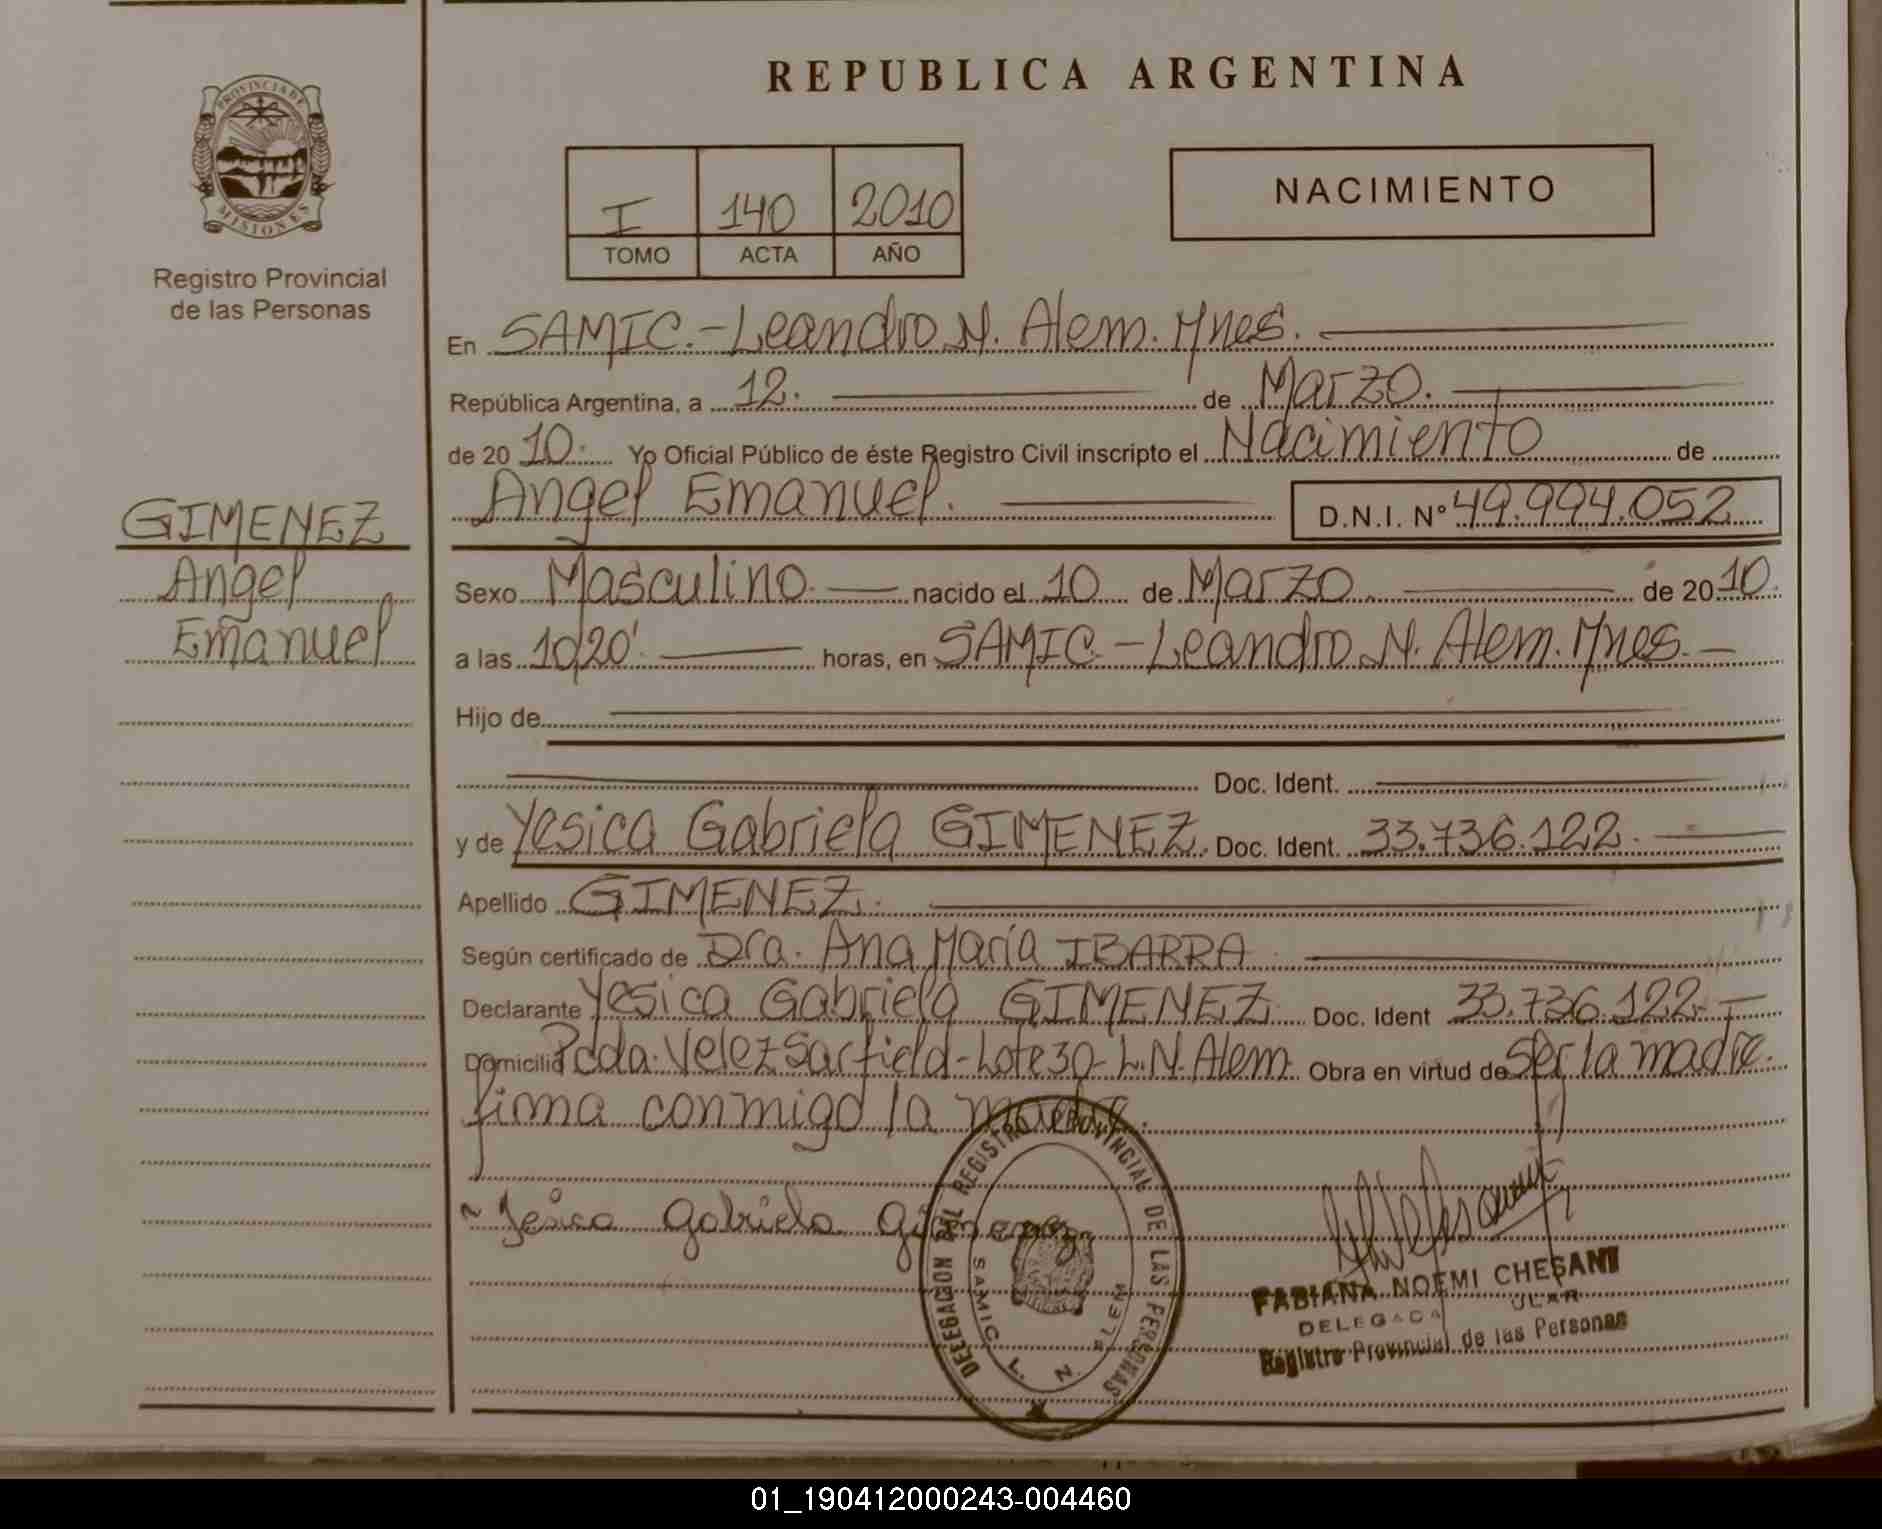 REPUBLICA ARGENTINA
PROVINCIA DE
MISIONES
Registro Provincial
de las Personas
I 140 2010
TOMO ACTA AÑO
NACIMIENTO
En SAMIC.-Leandro N. Alem. Mnes.
República Argentina, a 12. de Marzo.
de 20 10. Yo Oficial Público de éste Registro Civil inscripto el Nacimiento de
Angel Emanuel. D.N.I. Nº 49.994.052
GIMENEZ
Angel
Emanuel
Sexo Masculino. nacido el 10 de Marzo de 20 10.
a las 10,20' horas, en SAMIC.-Leandro N. Alem. Mnes.
Hijo de
Doc. Ident.
y de Yesica Gabriela GIMENEZ. Doc. Ident. 33.736.122.
Apellido GIMENEZ.
Según certificado de Dra. Ana María IBARRA
Declarante Yesica Gabriela GIMENEZ. Doc. Ident 33.736.122.-
Domicilio Pcda. Velez Sarfield-Lote 30-L.N.Alem. Obra en virtud de ser la madre.
firma conmigo la madre.
Yesica gabriela gimenez
DELEGACION DEL REGISTRO PROVINCIAL DE LAS PERSONAS
SAMIC. L. N. ALEM
FABIANA NOEMI CHESANI
DELEGADA
Registro Provincial de las Personas
01_190412000243-004460